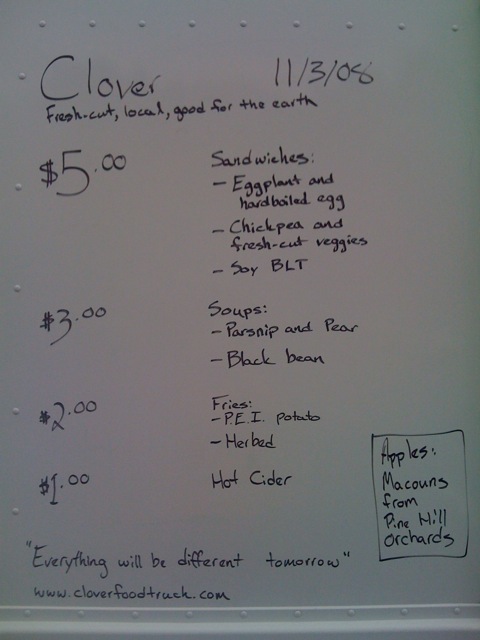 Clover 11/3/08
Fresh-cut, local, good for the earth
$5.00 Sandwiches:
- Eggplant and
hardboiled egg
- Chickpea and
fresh-cut veggies
- Soy BLT
$3.00 Soups:
- Parsnip and Pear
- Black bean
$2.00 Fries:
- P.E.I. potato
- Herbed
$1.00 Hot Cider
Apples:
Macouns
from
Pine Hill
Orchards
"Everything will be different tomorrow"
www.cloverfoodtruck.com